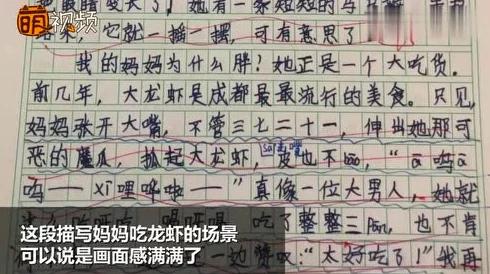 萌视频
来，它就一摇一摆，可有意思了
我的妈妈为什么胖？她正是一个大吃货。
前几年，大龙虾是成都最最流行的美食。只见，
妈妈张开大嘴，不管三七二十一，伸出她那可
恶的魔爪，抓起大龙虾，皮也不bāo，“ā呜ā
呜——xī哩哗啦——”真像一位大男人，她就
吃了整整三pán，也不肯
一边赞叹：“太好吃了！”我再
这段描写妈妈吃龙虾的场景
可以说是画面感满满了